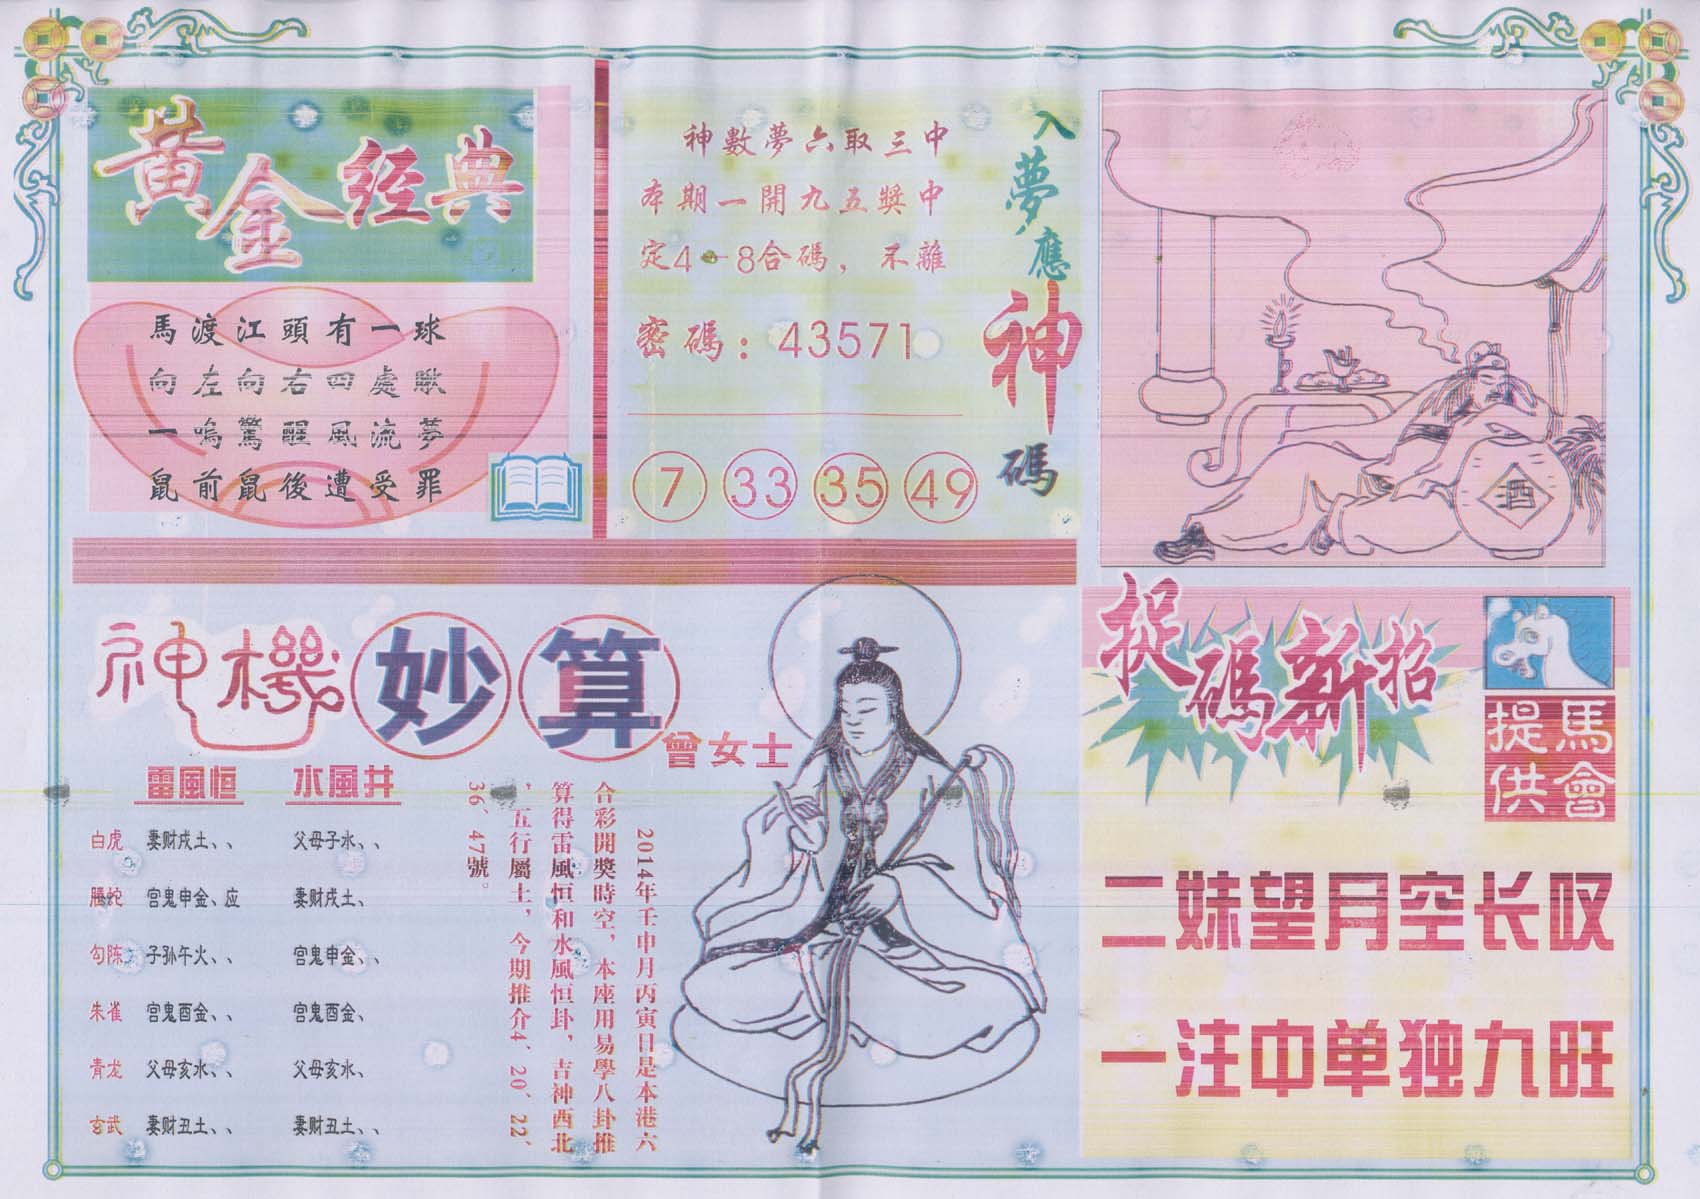 黄金经典
馬渡江頭有一球
向左向右四處瞅
一鳴驚醒風流夢
鼠前鼠後遭受罪
神數夢六取三中
本期一開九五獎中
定4-8合碼，不離
密碼：43571
7 33 35 49
入夢應神碼
酒
神機妙算
曾女士
雷風恒 水風井
白虎 妻财戌土、、 父母子水、、
騰蛇 宫鬼申金、应 妻财戌土、
勾陈 子孙午火、、 宫鬼申金、、
朱雀 宫鬼酉金、、 宫鬼酉金、
青龙 父母亥水、、 父母亥水、
玄武 妻财丑土、、 妻财丑土、、
2014年壬申月丙寅日是本港六
合彩開獎時空，本座用易學八卦推
算得雷風恒和水風恒卦，吉神西北
，五行屬土，今期推介4、20、22、
36、47號。
捉碼新招
馬會
提供
二妹望月空长叹
一注中单独九旺